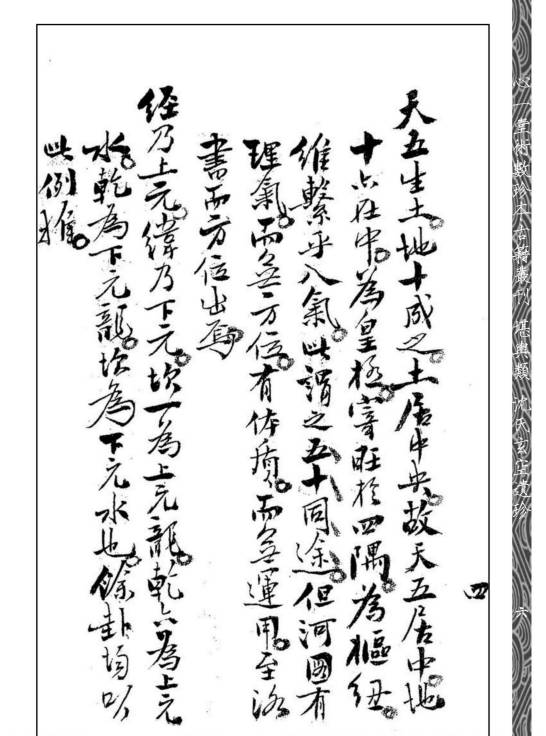 天五生土。地十成之。土居中央。故天五居中。地
十亦在中。為皇極。寄旺於四隅。為樞紐。
維繫乎八氣。此謂之五十同途。但河圖有
理氣。而無方位。有体質。而無運用。至洛
書而方位出焉。
經乃上元。緯乃下元。坎一為上元龍。乾六為上元
水。乾為下元龍。坎為下元水也。餘卦均以
此例推。
四
心一堂術數珍本古籍叢刊 堪輿類 沈氏玄空遺珍
六